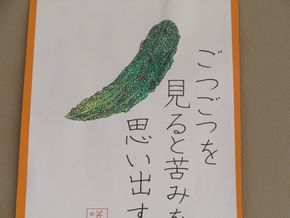 ごつごつを
見ると苦みを
思い出す
咲